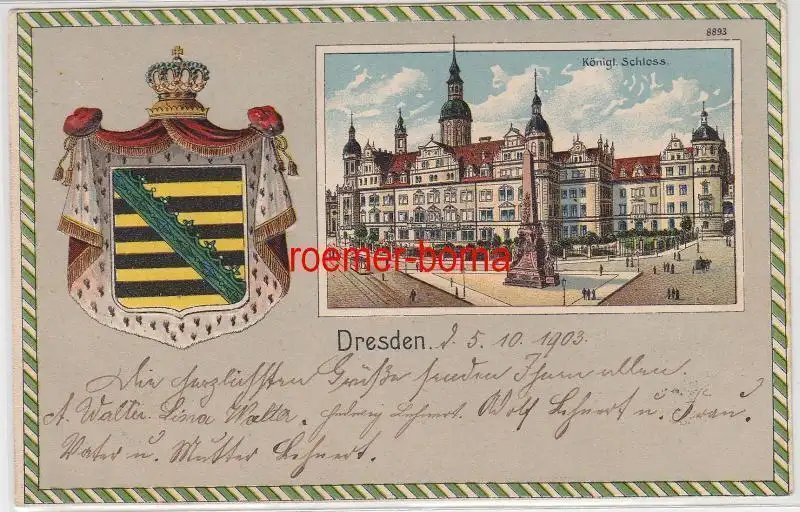 8893
Königl. Schloss.
roemer-borna
Dresden. d 5. 10. 1903.
Die herzlichsten Grüße senden Ihnen allen.
A. Walter. Lina Walter. Hedwig Lehnert. Adolf Lehnert u. Frau.
Vater u. Mutter Lehnert.